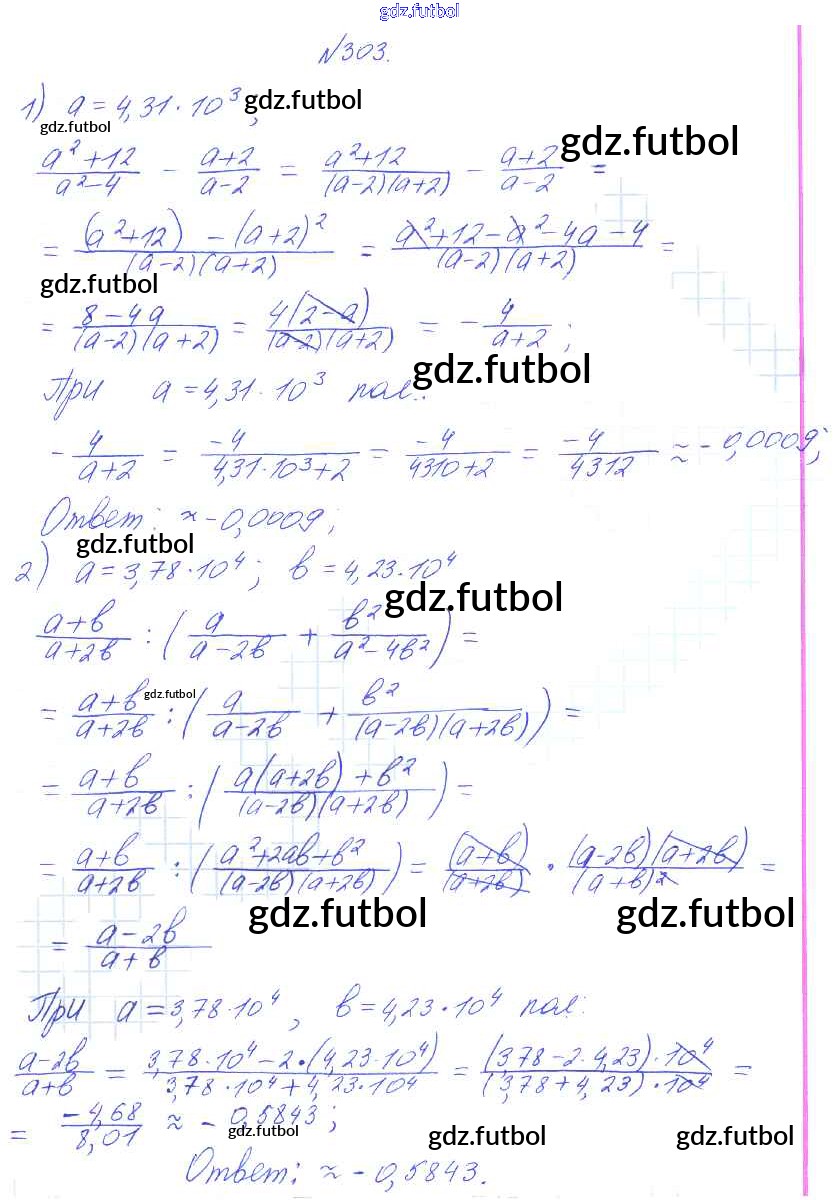 gdz.futbol
№303.
1) a = 4,31·10³; gdz.futbol
gdz.futbol
(a²+12)/(a²-4) - (a+2)/(a-2) = (a²+12)/((a-2)(a+2)) - (a+2)/(a-2) = gdz.futbol
= ((a²+12) - (a+2)²)/((a-2)(a+2)) = (a²+12-a²-4a-4)/((a-2)(a+2)) =
gdz.futbol
= (8-4a)/((a-2)(a+2)) = 4(2-a)/((a-2)(a+2)) = -4/(a+2);
gdz.futbol
При a = 4,31·10³ пол.:
-4/(a+2) = -4/(4,31·10³+2) = -4/(4310+2) = -4/4312 ≈ -0,0009;
Ответ: ≈ -0,0009;
gdz.futbol
2) a = 3,78·10⁴; в = 4,23·10⁴
gdz.futbol
(a+в)/(a+2в) : (a/(a-2в) + в²/(a²-4в²)) =
gdz.futbol
= (a+в)/(a+2в) : (a/(a-2в) + в²/((a-2в)(a+2в))) =
= (a+в)/(a+2в) : ((a(a+2в)+в²)/((a-2в)(a+2в))) =
= (a+в)/(a+2в) : ((a²+2aв+в²)/((a-2в)(a+2в))) = (a+в)/(a+2в) · ((a-2в)(a+2в))/(a+в)² =
gdz.futbol gdz.futbol
= (a-2в)/(a+в)
При a = 3,78·10⁴, в = 4,23·10⁴ пол:
(a-2в)/(a+в) = (3,78·10⁴-2·(4,23·10⁴))/(3,78·10⁴+4,23·10⁴) = ((3,78-2·4,23)·10⁴)/((3,78+4,23)·10⁴) =
= -4,68/8,01 ≈ -0,5843;
gdz.futbol gdz.futbol gdz.futbol
Ответ: ≈ -0,5843.